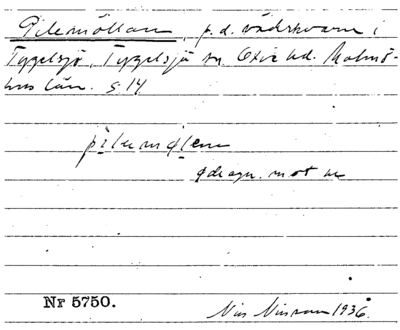 Pilemöllan, p.d. väderkvarn i
Tygelsjö, Tygelsjö sn Oxie hd. Malmö-
hus län. S. 14
ødragn. mot œ
Nr 5750.
Nils Nilsson 1936.